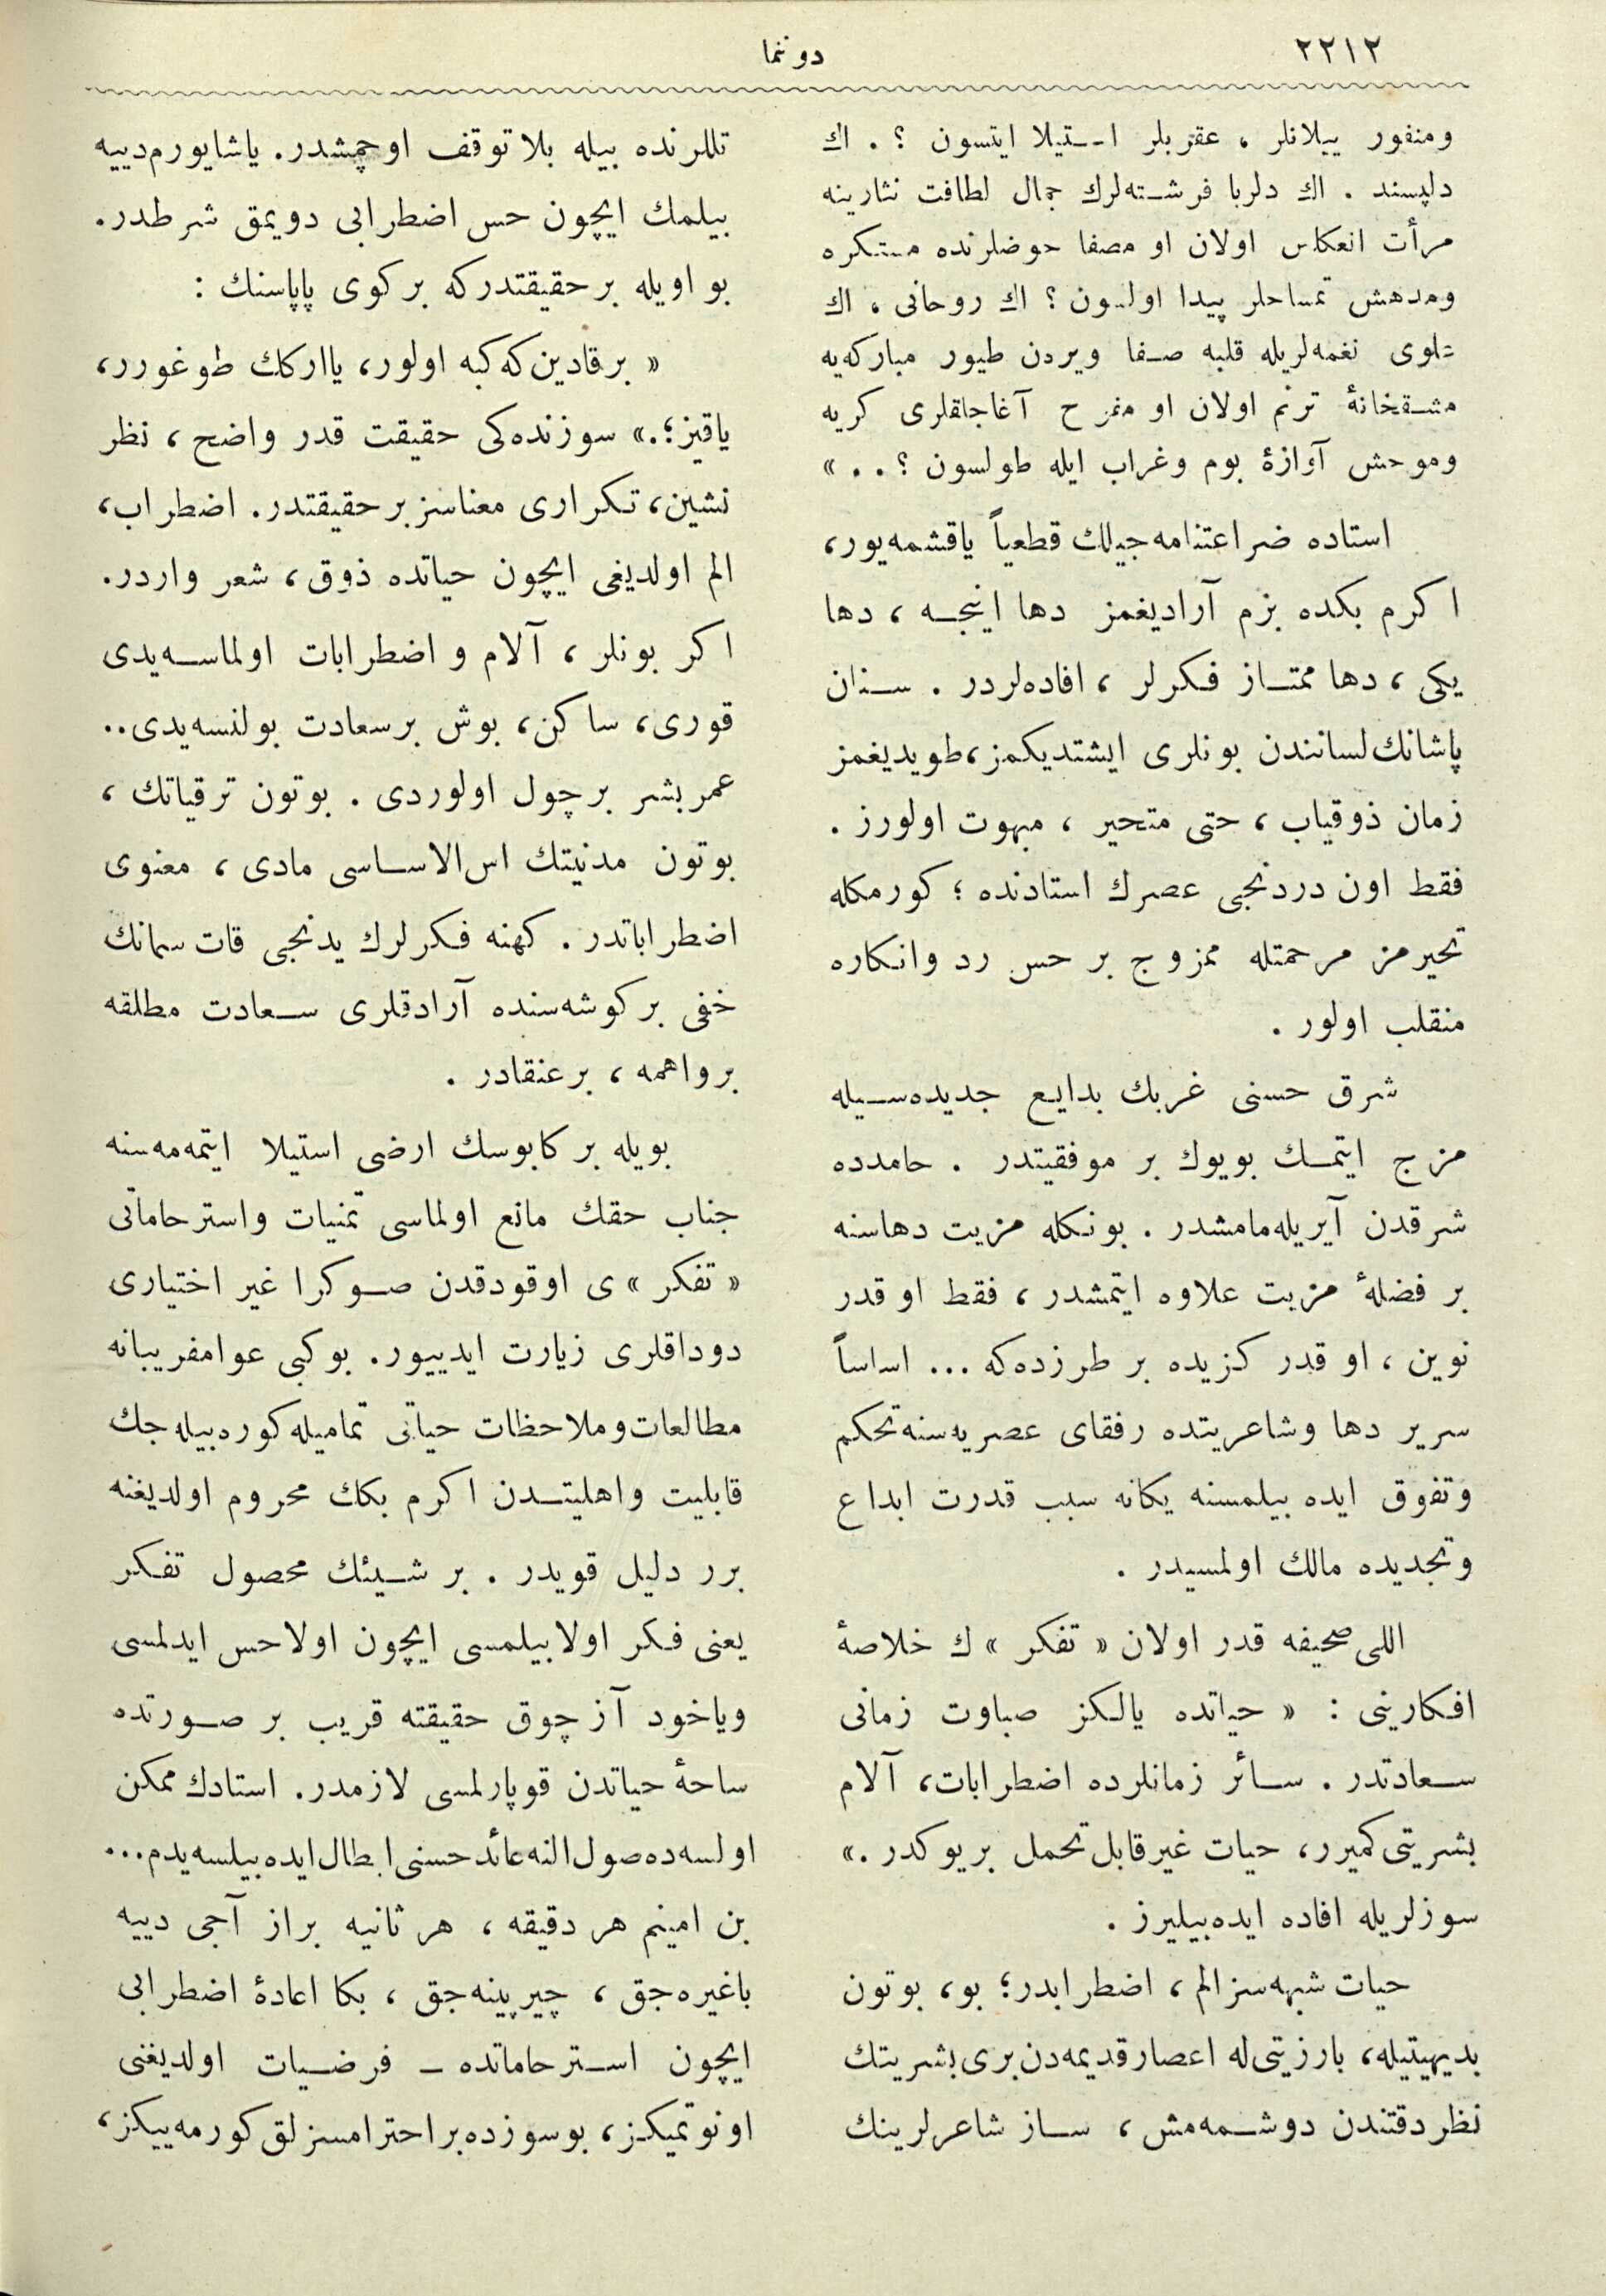 ٢٢١٢
دوننما
ومنفور ييلانلر ، عقربلر استيلا ايتسون ؟ . اك
دلپسند . اك دلربا فرشته‌لرك جمال لطافت نثارينه
مرأت انعكاس اولان او مصفا حوضلرنده مستكره
ومدهش تمساحلر پيدا اولسون ؟ اك روحانى ، اك
علوى نغمه‌لريله قلبه صفا ويردن طيور مباركه‌يه
مشقخانهٔ ترنم اولان او مفرح آغاجلقلرى كريه
وموحش آوازهٔ بوم وغراب ايله طولسون ؟ . . »
استاده ضراعتنامه‌جيلك قطعياً ياقشمه‌يور،
اكرم بكده بزم آراديغمز دها اينجه ، دها
يكى ، دها ممتاز فكرلر ، افاده‌لردر . سنان
پاشانك لسانندن بونلرى ايشتديكمز، طويديغمز
زمان ذوقياب ، حتى متحير ، مبهوت اولورز .
فقط اون دردنجى عصرك استادنده ؛ كورمكله
تحيرمز مرحمتله ممزوج بر حس رد وانكاره
منقلب اولور .
شرق حسنى غربك بدايع جديده‌سيله
مزج ايتمك بويوك بر موفقيتدر . حامدده
شرقدن آيريله‌مامشدر . بونكله مزيت دهاسنه
بر فضلهٔ مزيت علاوه ايتمشدر ، فقط او قدر
نوين ، او قدر كزيده بر طرزده‌كه ... اساساً
سرير دها وشاعريتده رفقاى عصريه‌سنه تحكم
وتفوق ايده بيلمسنه يكانه سبب قدرت ابداع
وتجديده مالك اولمسيدر .
اللى صحيفه قدر اولان « تفكر » ك خلاصهٔ
افكارينى : « حياتده يالكز صباوت زمانى
سعادتدر . سائر زمانلرده اضطرابات، آلام
بشريتى كميرر، حيات غيرقابل تحمل بريوكدر .»
سوزلريله افاده ايده‌بيليرز .
حيات شبهه‌سز الم ، اضطرابدر؛ بو، بوتون
بديهيتيله، بارزيتى‌له اعصار قديمه‌دن برى بشريتك
نظر دقتندن دوشمه‌مش ، ساز شاعرلرينك
تللرنده بيله بلا توقف اوچمشدر. ياشايورم دييه
بيلمك ايچون حس اضطرابى دويمق شرطدر.
بو اويله بر حقيقتدركه بر كوى پاپاسنك :
« بر قادين كه كبه اولور، يا اركك طوغورر،
ياقيز؛.» سوزنده‌كى حقيقت قدر واضح ، نظر
نشين، تكرارى معناسز بر حقيقتدر. اضطراب،
الم اولديغى ايچون حياتده ذوق ، شعر واردر.
اكر بونلر ، آلام و اضطرابات اولماسه‌يدى
قورى، ساكن، بوش بر سعادت بولنسه‌يدى..
عمر بشر بر چول اولوردى . بوتون ترقياتك ،
بوتون مدنيتك اس‌الاساسى مادى ، معنوى
اضطراباتدر . كهنه فكرلرك يدنجى قات سمانك
خفى بر كوشه‌سنده آرادقلرى سعادت مطلقه
بر واهمه ، بر عنقادر .
بويله بر كابوسك ارضى استيلا ايتمه‌مه‌سنه
جناب حقك مانع اولماسى تمنيات واسترحاماتى
« تفكر » ى اوقودقدن صوكرا غير اختيارى
دوداقلرى زيارت ايدييور. بو كبى عوامفريبانه
مطالعات وملاحظات حياتى تماميله كوره‌بيله‌جك
قابليت واهليتدن اكرم بكك محروم اولديغنه
برر دليل قويدر . بر شيئك محصول تفكر
يعنى فكر اولا بيلمسى ايچون اولا حس ايدلمسى
وياخود آز چوق حقيقته قريب بر صورتده
ساحهٔ حياتدن قوپارلمسى لازمدر. استادك ممكن
اولسه‌ده صول النه عائد حسنى ابطال ايده بيلسه‌يدم...
بن امينم هر دقيقه ، هر ثانيه براز آجى دييه
باغيره‌جق ، چيرپينه‌جق ، بكا اعادهٔ اضطرابى
ايچون استرحاماتده ــ فرضيات اولديغنى
اونوتميكز، بوسوزده بر احترامسزلق كورمه‌ييكز،